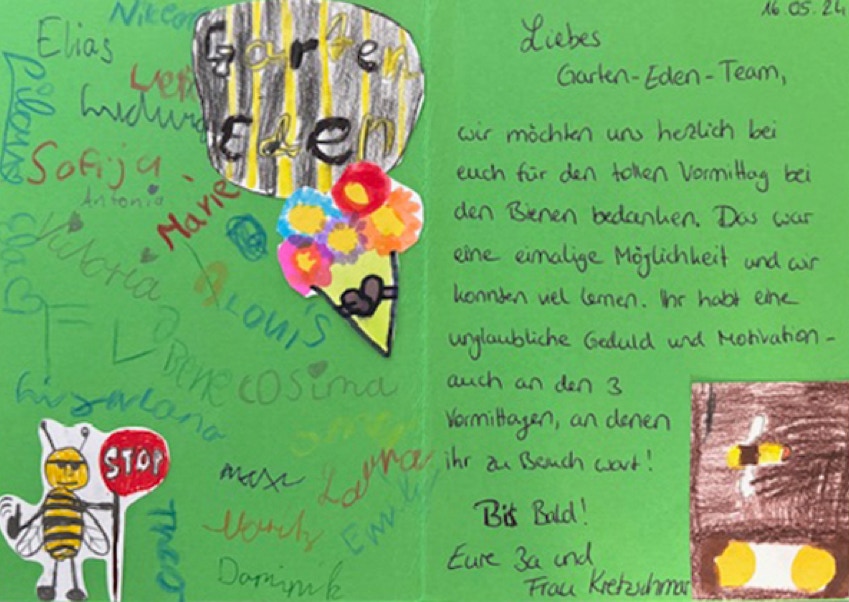 Elias
Sofija
Antonia
Marie
Victoria
LOUIS
Bene
cosima
max
Moritz
Dominik
THEO
Garten
Eden
STOP
16.05.24
Liebes
Garten-Eden-Team,
wir möchten uns herzlich bei
euch für den tollen Vormittag bei
den Bienen bedanken. Das war
eine einmalige Möglichkeit und wir
konnten viel lernen. Ihr habt eine
unglaubliche Geduld und Motivation -
auch an den 3
Vormittagen, an denen
ihr zu Besuch wart!
Bis Bald!
Eure 3a und
Frau Kretzschmar